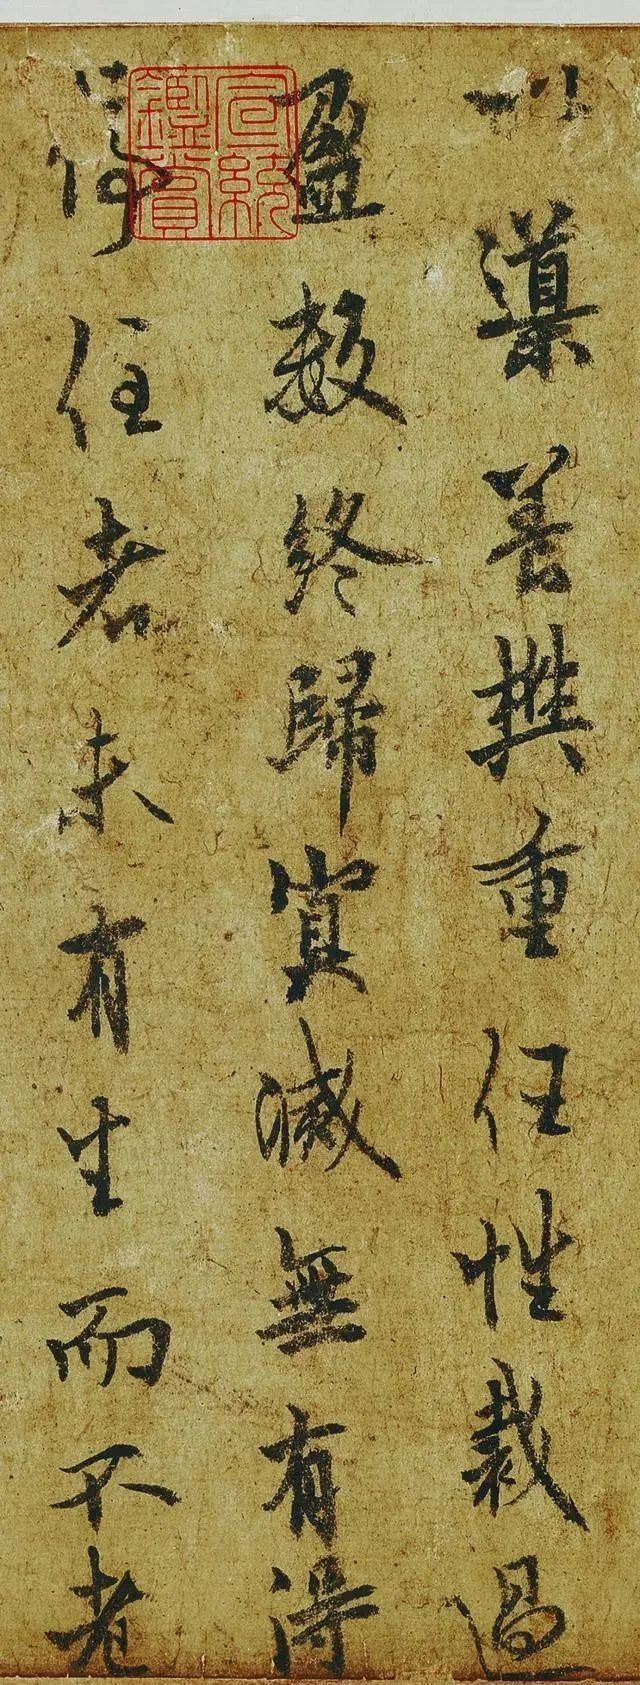 以導養樊重任性裁過
盈數終歸冥滅無有得
停住者未有生而不老
宣統
鑑賞